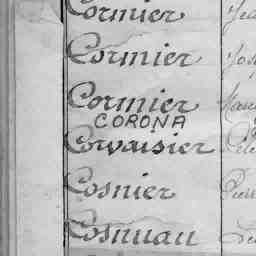 Cormier
Cormier
Cormier
CORONA
Corvaisier
Cosnier
Cosnuau